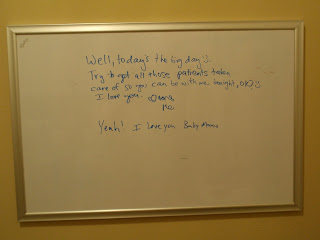 Well, today's the big day!
Try to get all those patients taken
care of so you can be with me tonight, OK?
I love you.
me
Yeah! I love you Baby